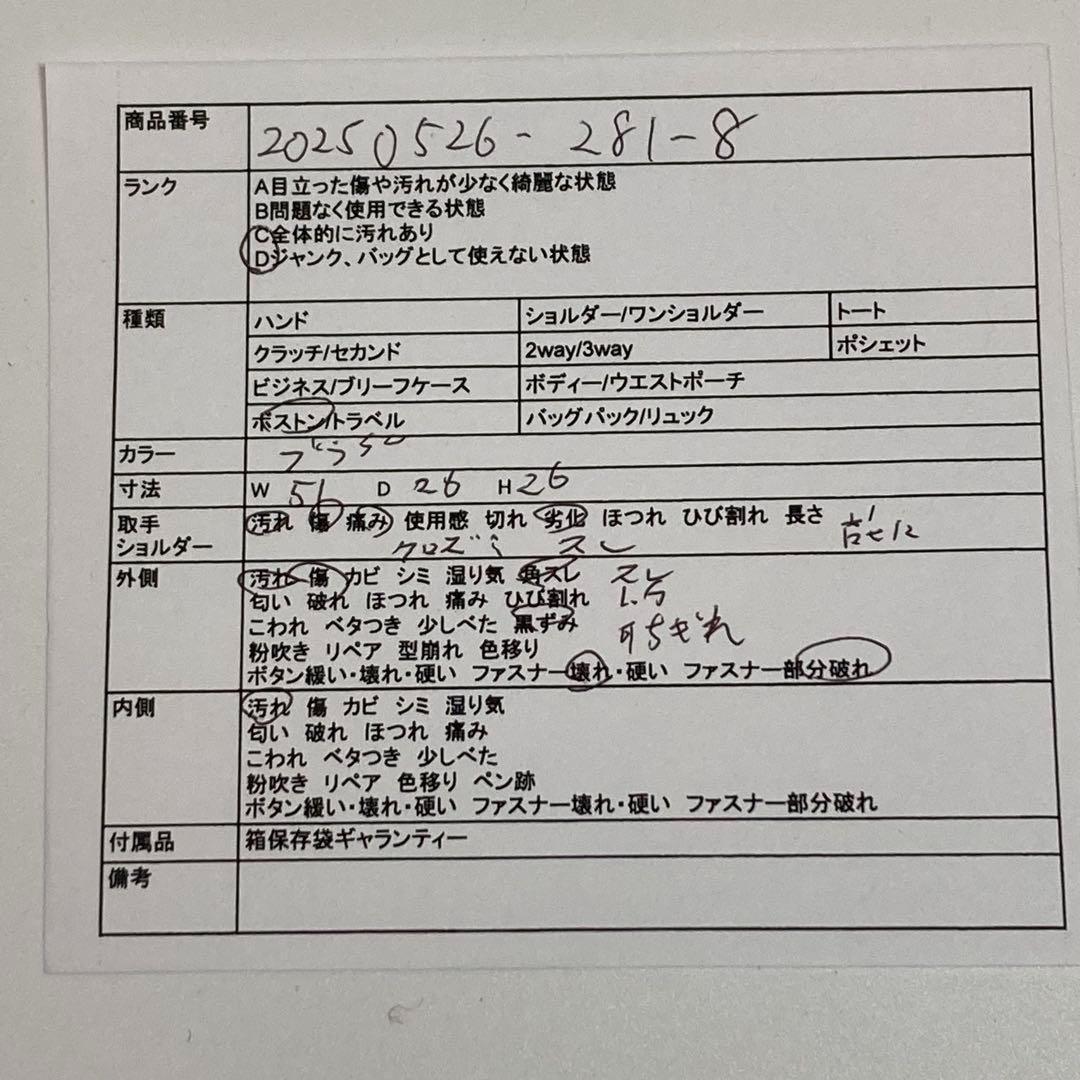 商品番号 20250526-281-8
ランク A目立った傷や汚れが少なく綺麗な状態
B問題なく使用できる状態
C全体的に汚れあり
Dジャンク、バッグとして使えない状態
種類 ハンド ショルダー/ワンショルダー トート
クラッチ/セカンド 2way/3way ポシェット
ビジネス/ブリーフケース ボディー/ウエストポーチ
ボストン/トラベル バッグパック/リュック
カラー
寸法 W 56 D 26 H 26
取手 汚れ 傷 痛み 使用感 切れ 劣化 ほつれ ひび割れ 長さ 12
ショルダー クロズミ スレ
外側 汚れ 傷 カビ シミ 湿り気 角スレ スレ
匂い 破れ ほつれ 痛み ひび割れ
こわれ ベタつき 少しべた 黒ずみ ちぎれ
粉吹き リペア 型崩れ 色移り
ボタン緩い・壊れ・硬い ファスナー壊れ・硬い ファスナー部分破れ
内側 汚れ 傷 カビ シミ 湿り気
匂い 破れ ほつれ 痛み
こわれ ベタつき 少しべた
粉吹き リペア 色移り ペン跡
ボタン緩い・壊れ・硬い ファスナー壊れ・硬い ファスナー部分破れ
付属品 箱保存袋ギャランティー
備考